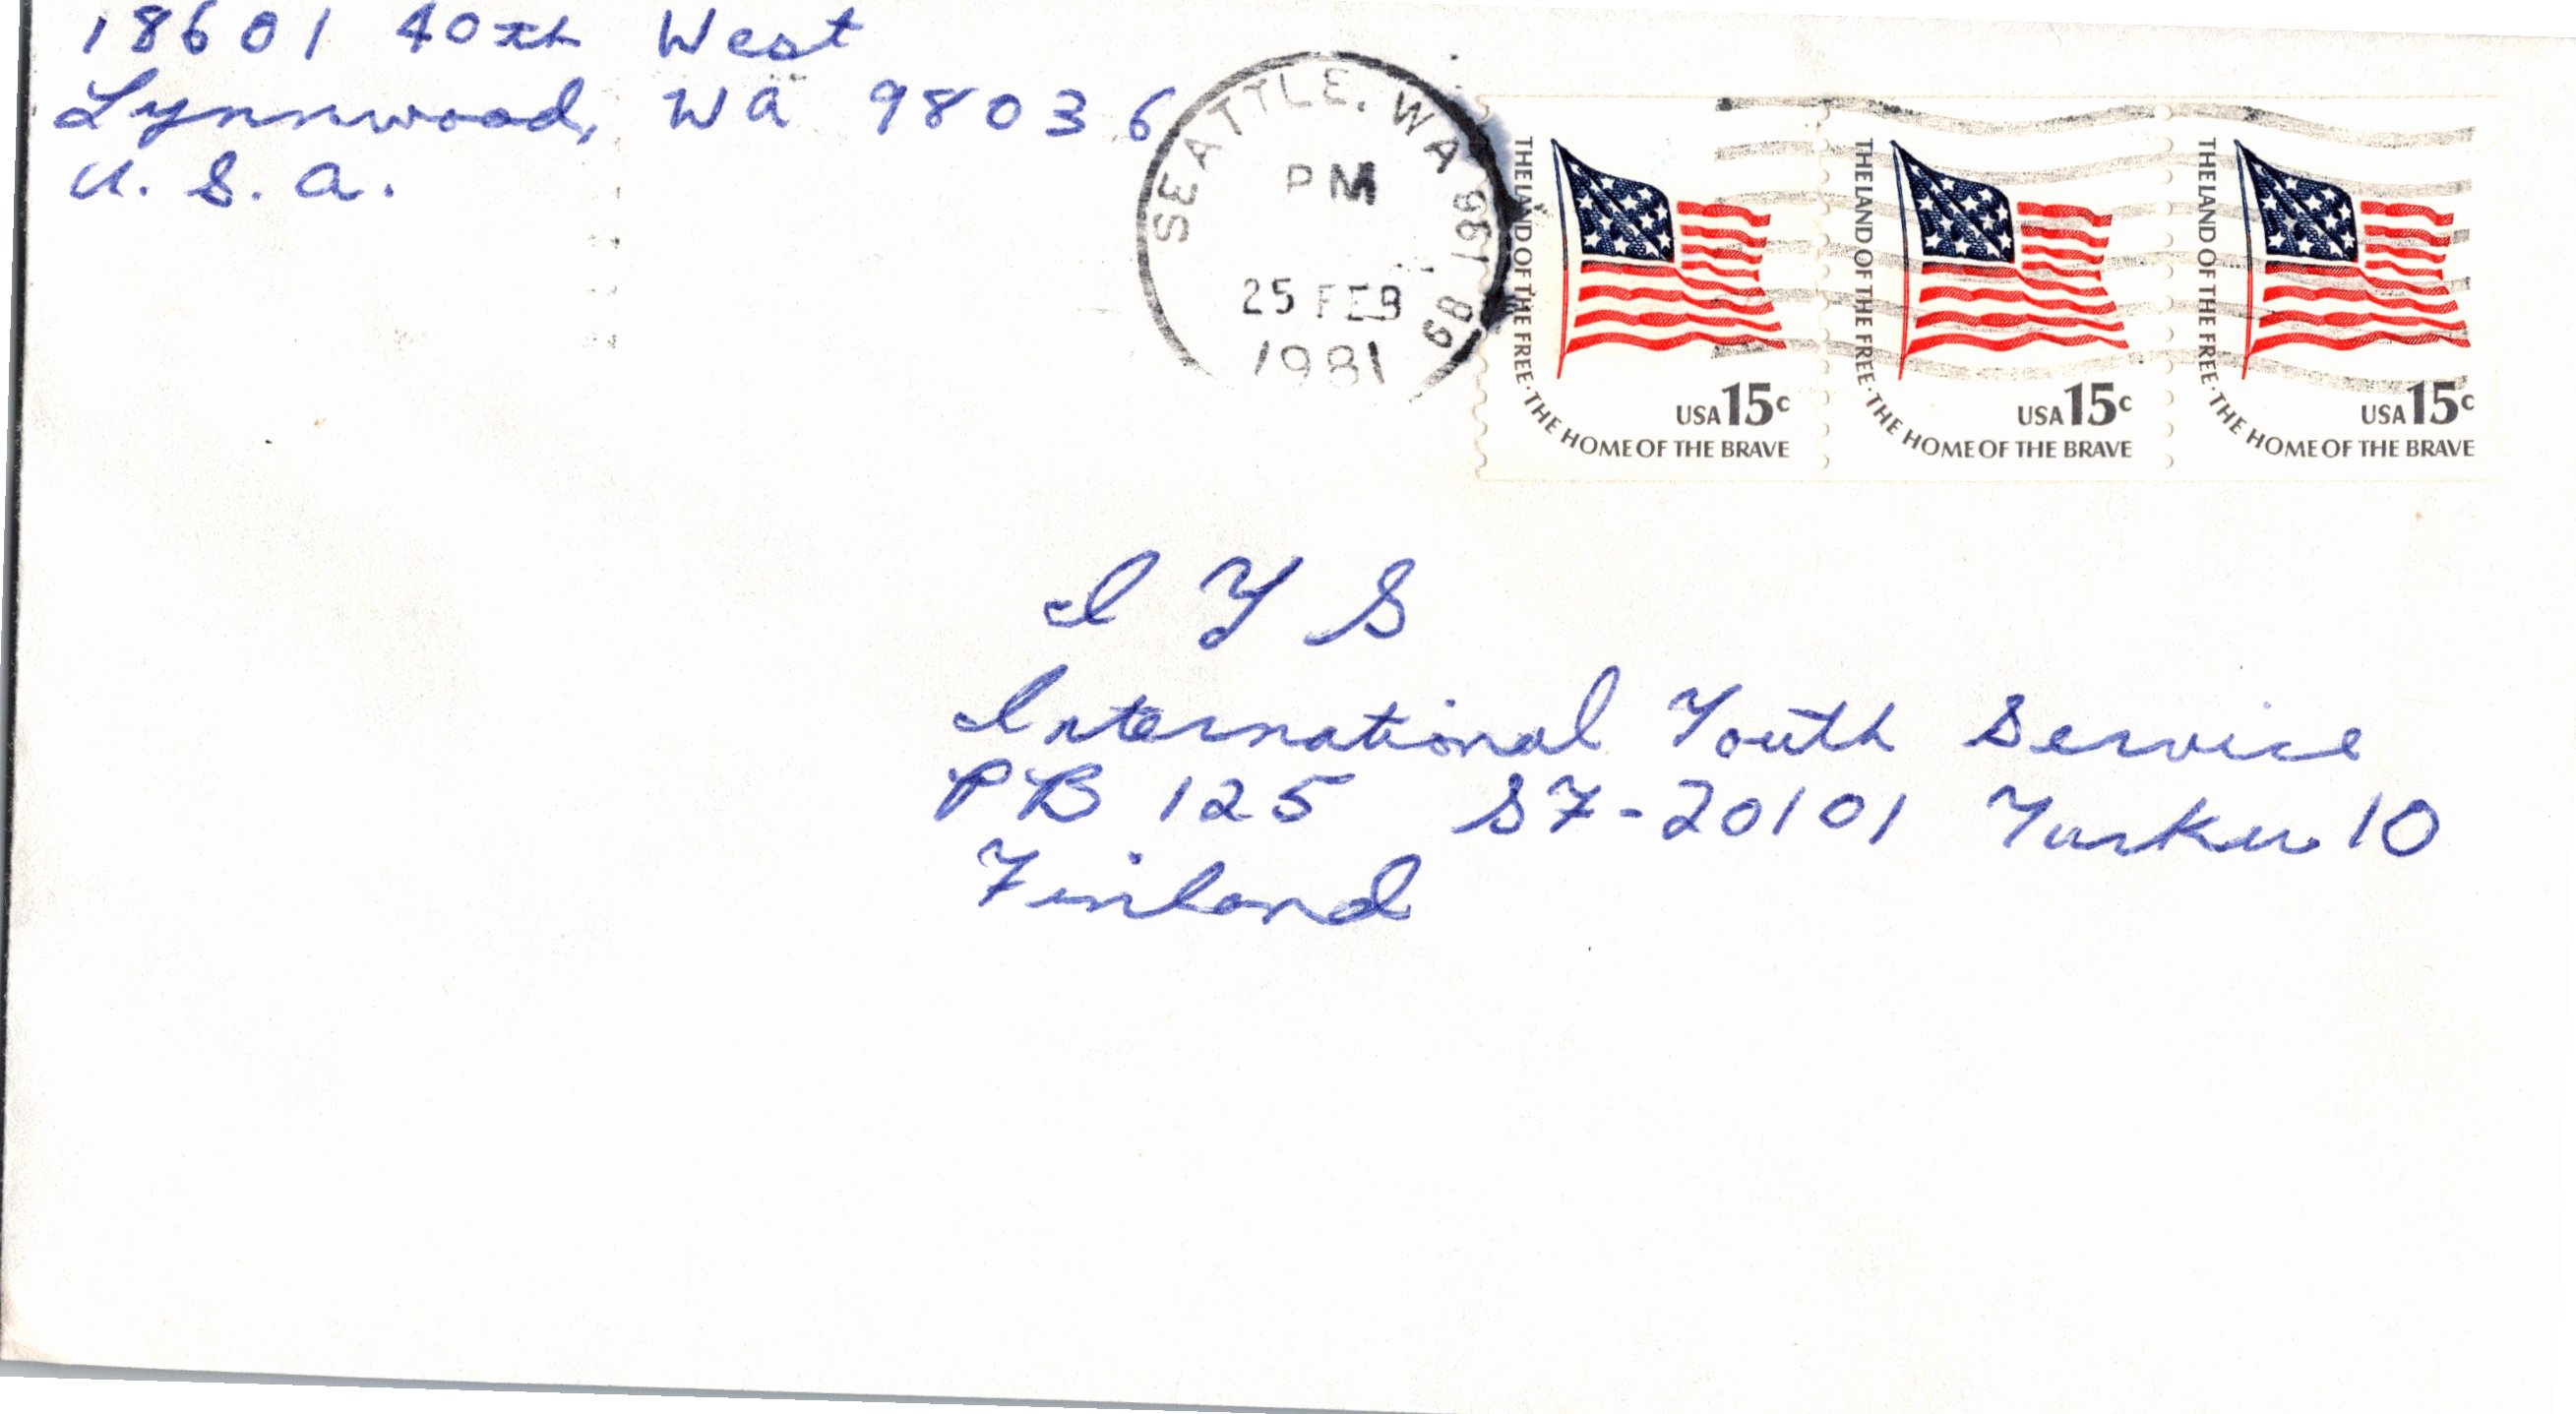 18601 40th West
Lynnwood, Wa 98036
U. S. A.
SEATTLE, WA 981
PM
25 FEB
1981
THE LAND OF THE FREE · THE HOME OF THE BRAVE
USA 15c
THE LAND OF THE FREE · THE HOME OF THE BRAVE
USA 15c
THE LAND OF THE FREE · THE HOME OF THE BRAVE
USA 15c
I Y S
International Youth Service
PB 125 SF-20101 Turku 10
Finland